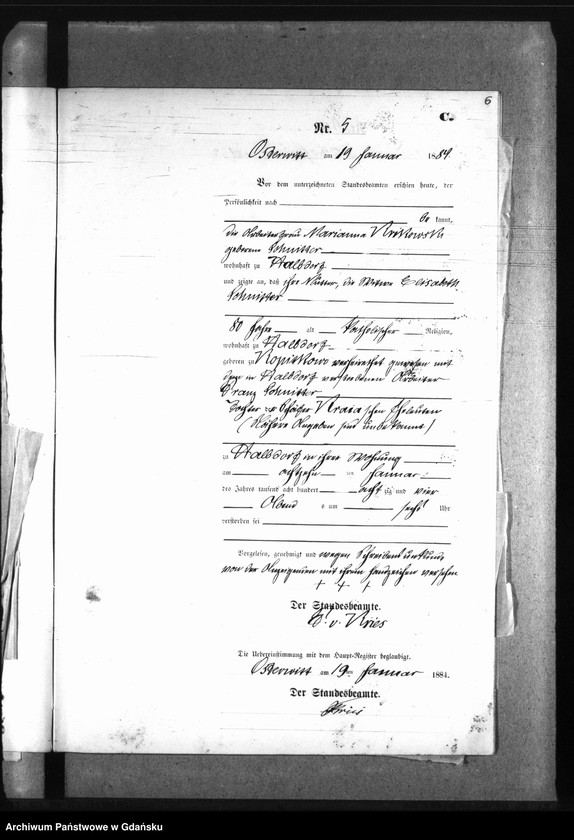 6
C.
Nr. 5
Osterwitt am 19 Januar 1884.
Vor dem unterzeichneten Standesbeamten erschien heute, der
Persönlichkeit nach
be kannt,
die Arbeiterfrau Marianna
geborene Schnitter
wohnhaft zu
und zeigte an, daß ihre Mutter, die Wittwe Elisabeth
Schnitter
80 Jahr alt Katholischer Religion,
wohnhaft zu
geboren zu verheirathet gewesen mit
dem in verstorbenen Arbeiter
Franz Schnitter
Tochter der Schäfer schen Eheleuten
(Nähere Angaben sind unbekannt)
zu in ihrer Wohnung
am achtzehn ten Januar
des Jahres tausend acht hundert acht zig und vier
Abend s um sechs Uhr
verstorben sei
Vorgelesen, genehmigt und wegen Schreibensunkunde
von der Anzeigenden mit ihrem Handzeichen versehen
+ + +
Der Standesbeamte.
v. Kries
Die Uebereinstimmung mit dem Haupt-Register beglaubigt.
Osterwitt am 19ten Januar 1884.
Der Standesbeamte.
Kries
Archiwum Państwowe w Gdańsku